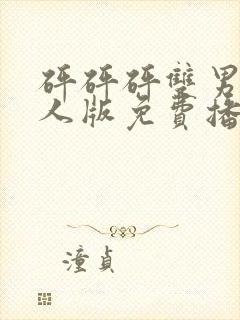 砰砰砰雙男
人版免費播
潼貞